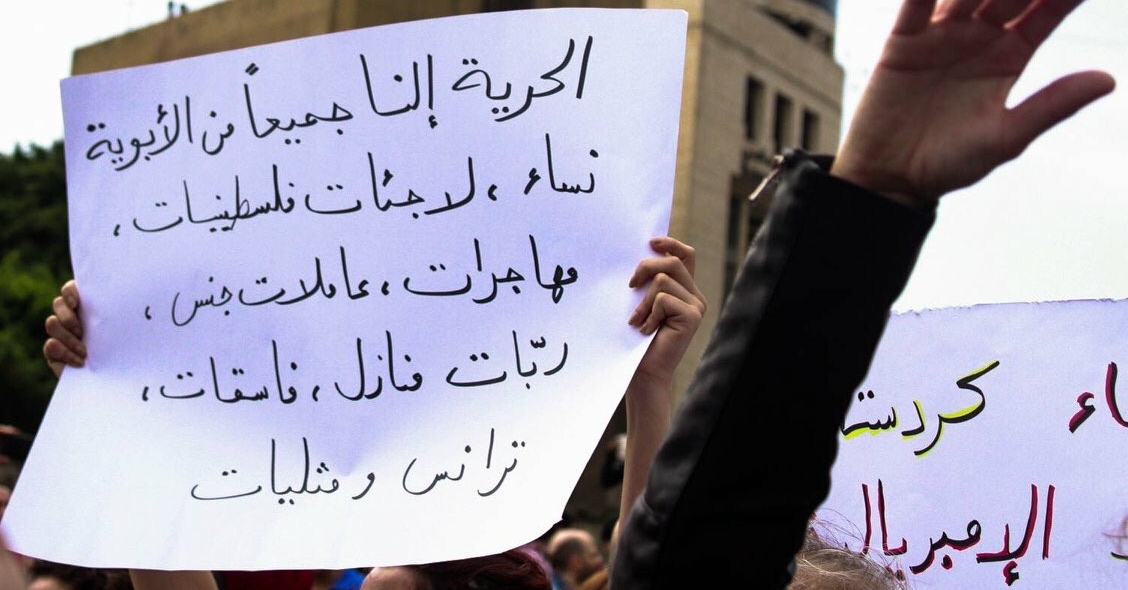 الحرية إلنا جميعاً من الأبوية
نساء ، لاجئات فلسطينيات ،
مهاجرات ، عاملات جنس ،
ربّات منازل ، فاسقات ،
ترانس و مثليات
كردست
الإمبريال